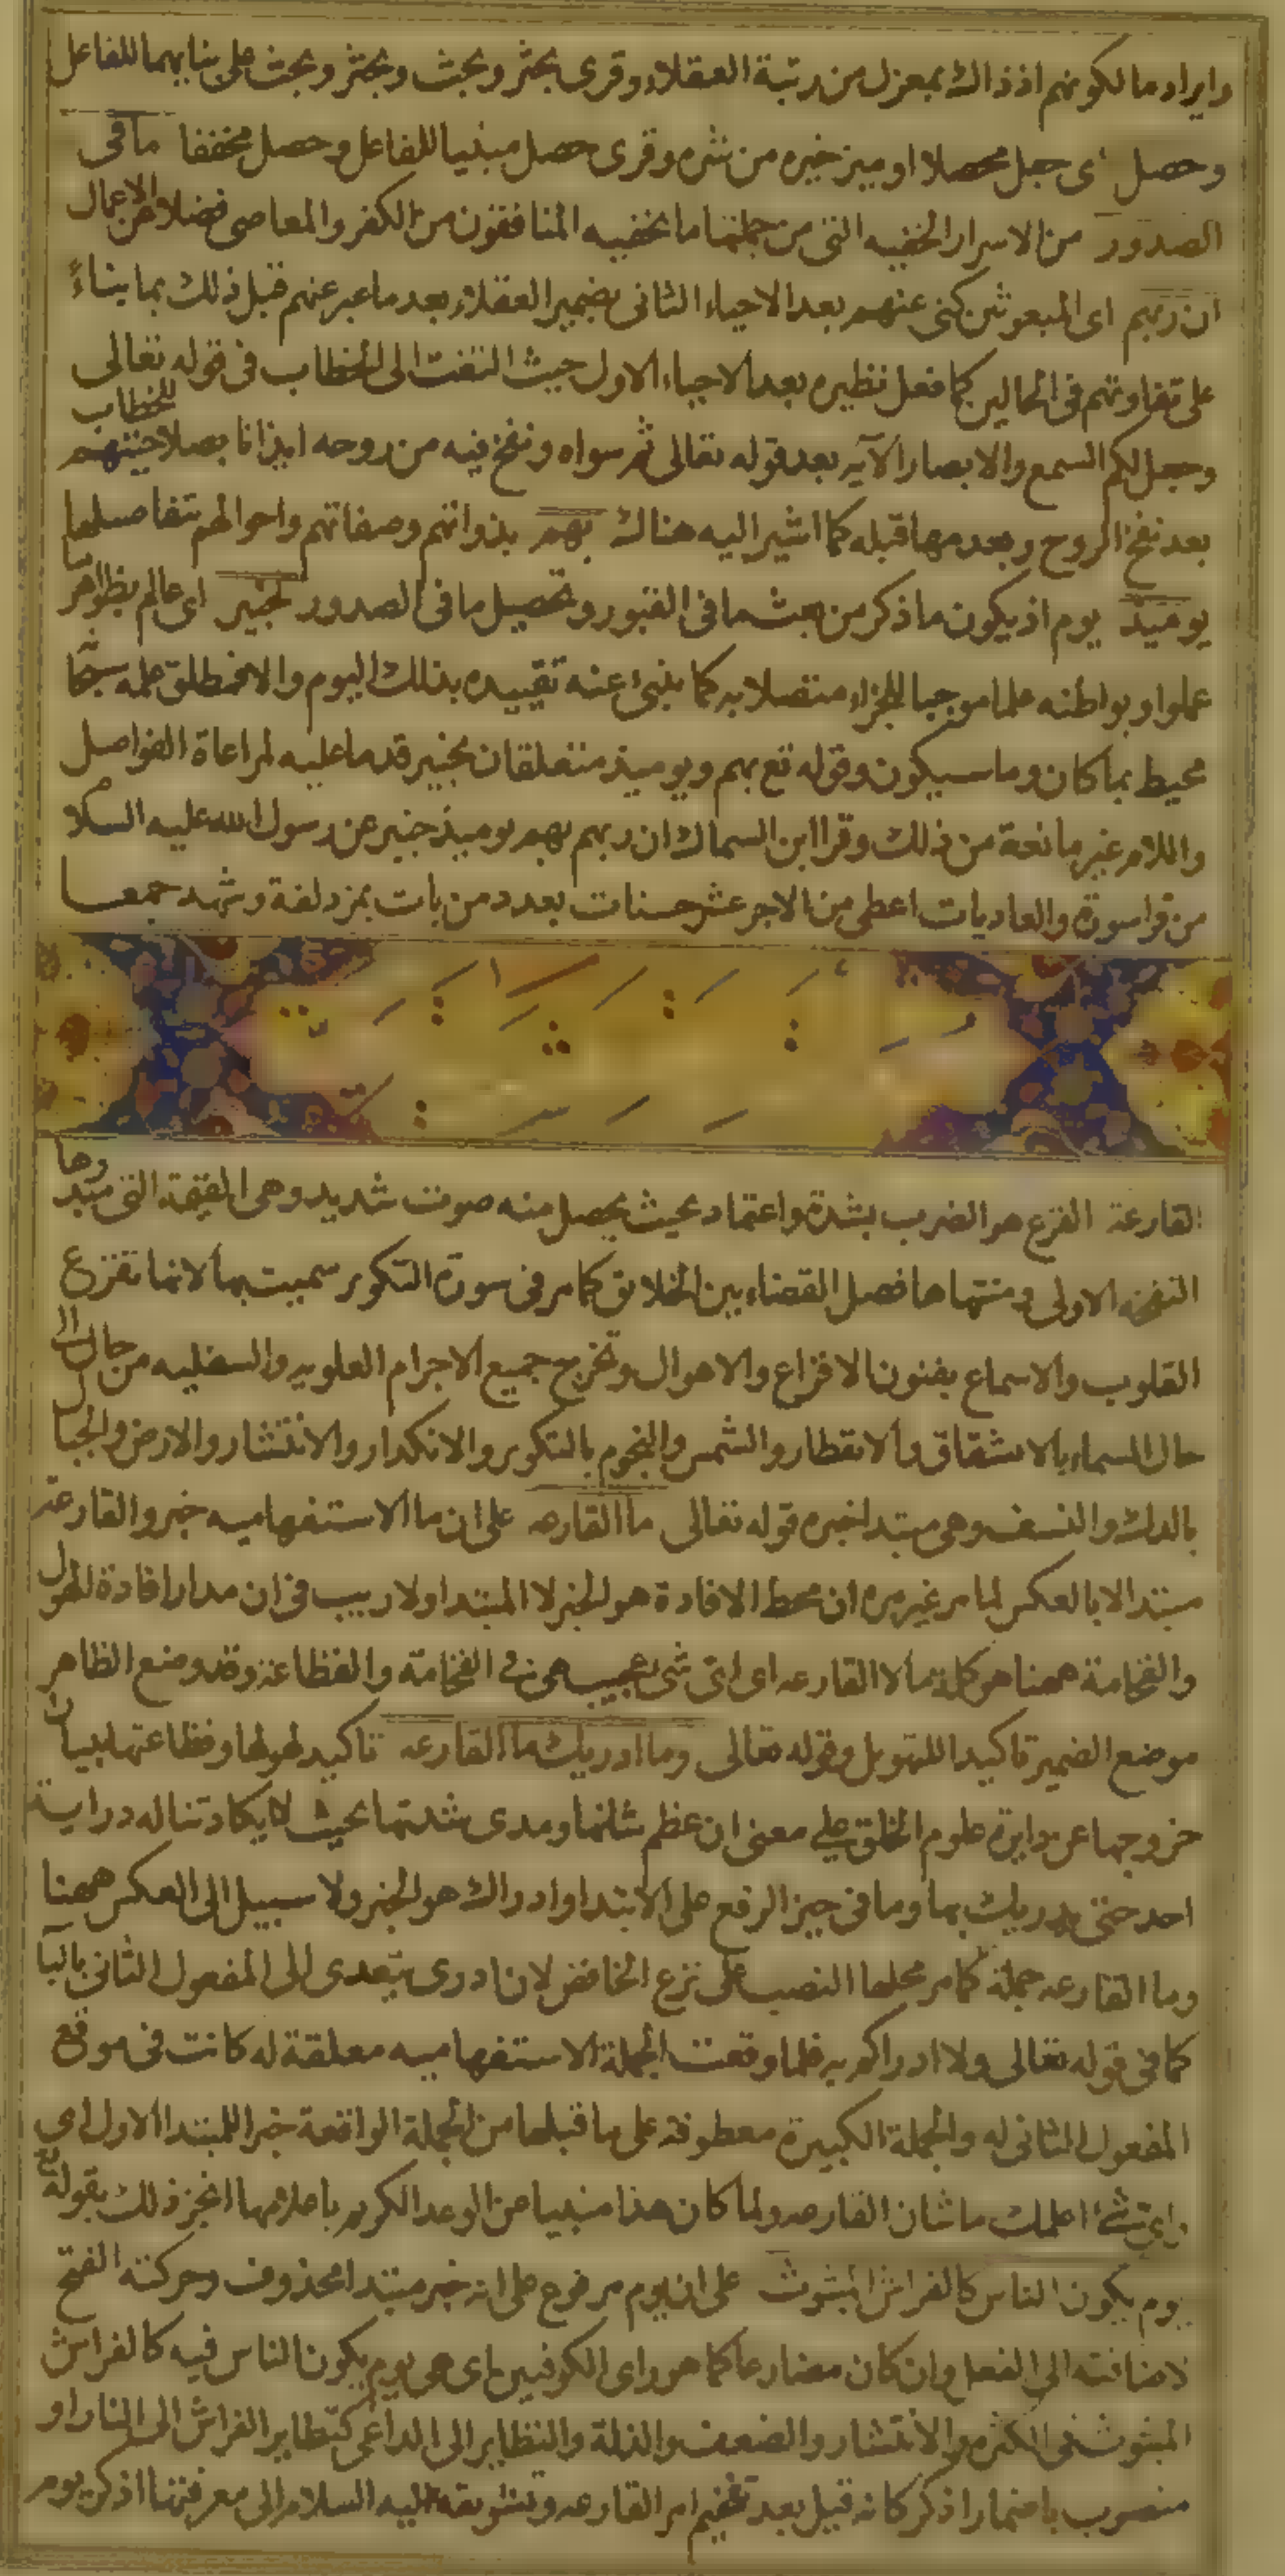 وايراد ما لكونهم اذ ذاك بمعزل من رتبة العقلاء وقرى بحثر وبحث وبحثر وبحث على بنايهما للفاعل
وحصل اى جعل محصلا او ميز خيره من شره وقرى حصل مبنيا للفاعل وحصل مخففا ما فى
الصدور من الاسرار الخفيه التى من جملتها ما يخفيه المنافقون من الكفر والمعاصى فضلا عن الاعمال
ان ربهم اى المبعوثين كنى عنهم بعد الاحياء الثانى بضمير العقلاء بعد ما عبر عنهم قبل ذلك بما بناء
على تفاوتهم فى الحالين كما فعل نظيره بعد الاحياء الاول حيث التفت الى الخطاب فى قوله تعالى
وجعل لكم السمع والابصار الآيه بعد قوله تعالى ثم سواه ونفخ فيه من روحه ايذانا بصلاحيتهم للخطاب
بعد نفخ الروح وبعدمها قبله كما اشير اليه هناك بهم بذواتهم وصفاتهم واحوالهم بتفاصيلها
يوميذ يوم اذ يكون ما ذكر من بعث ما فى القبور وتحصيل ما فى الصدور لخبير اى عالم بظواهر ما
عملوا وبواطنه علما موجبا للجزاء متصلا به كما ينبئ عنه تقييده بذلك اليوم والا فمطلق علمه سبحانه
محيط بما كان وما سيكون وقوله تع بهم ويوميذ متعلقان بخبير قدما عليه لمراعاة الفواصل
واللام غير مانعة من ذلك وقرا ابن السماك ان ربهم بهم يوميذ خبير عن رسول الله عليه السلام
من قرا سورة والعاديات اعطى من الاجر عشر حسنات بعدد من بات بمزدلفة وشهد جمعا
القارعة القرع هو الضرب بشدة واعتماد بحيث يحصل منه صوت شديد وهى القيمة التى مبدوها
النفخه الاولى ومنتهاها فصل القضاء بين الخلايق كما مر فى سورة التكوير سميت بها لانها تقرع
القلوب والاسماع بفنون الافزاع والاهوال وتخرج جميع الاجرام العلويه والسفليه من حال الى
حال السماء بالانشقاق والانفطار والشمس والنجوم بالتكوير والانكدار والانتثار والارض والجبال
بالدك والنسف وهى مبتدا خبره قوله تعالى ما القارعه على ان ما الاستفهاميه خبر والقارعة
مبتدا لا بالعكس لما مر غير مره ان محط الافادة هو الخبر لا المبتدا ولا ريب فى ان مدار افادة الهول
والفخامة ههنا هو كلمة ما لا القارعه اى اى شئ عجيب هى فى الفخامة والفظاعة وقد وضع الظاهر
موضع الضمير تاكيدا للتهويل وقوله تعالى وما ادريك ما القارعه تاكيد لهولها وفظاعتها ببيان
خروجها عن دايرة علوم الخلق على معنى ان عظم شانها ومدى شدتها بحيث لا يكاد تناله دراية
احد حتى يدريك بها وما فى حيز الرفع على الابتدا وادراك هو الخبر ولا سبيل الى العكس ههنا
وما القارعه جملة كما مر محلها النصب على نزع الخافض لان ادرى يتعدى الى المفعول الثانى بالباء
كما فى قوله تعالى ولا ادراكم به فلما وقعت الجملة الاستفهاميه معلقة له كانت فى موقع
المفعول الثانى له والجملة الكبيرة معطوفة على ما قبلها من الجملة الواقعة خبرا للمبتدا الاول اى
واى شئ اعلمك ما شان القارعه ولما كان هذا منبيا عن الوعد الكريم باعلامها انجز ذلك بقوله تع
يوم يكون الناس كالفراش المبثوث على ان يوم مرفوع على انه خبر مبتدا محذوف وحركته الفتح
لاضافته الى الفعل وان كان مضارعا كما هو راى الكوفيين اى هى يوم يكون الناس فيه كالفراش
المبثوث فى الكثره والانتشار والضعف والذلة والتطاير الى الداعى كتطاير الفراش الى النار او
منصوب باضمار اذكر كانه قيل بعد تفخيم امر القارعه وتشويقه عليه السلام الى معرفتها اذكر يوم